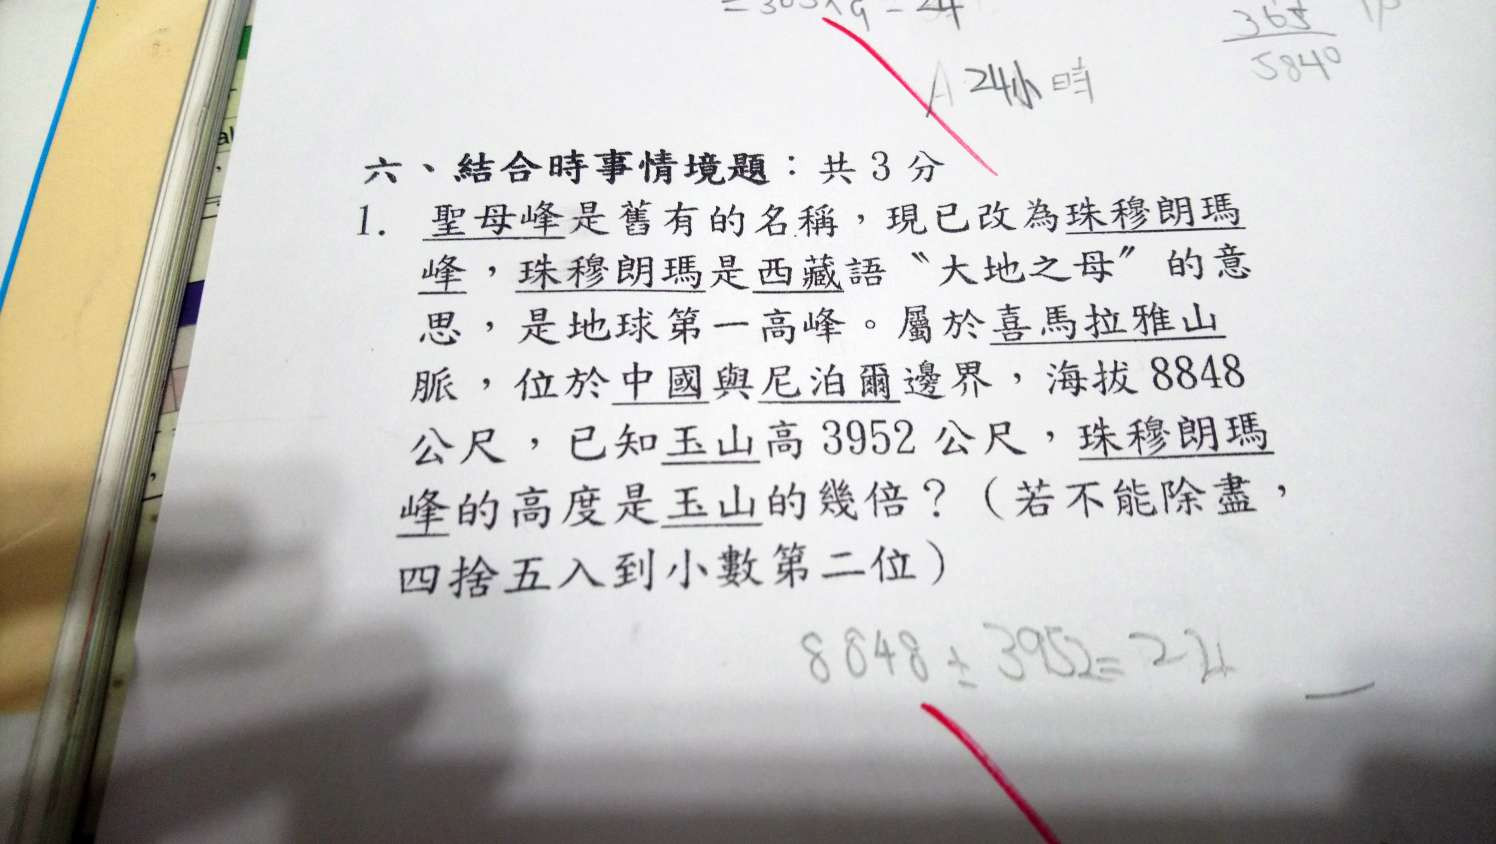 A 24小時
365
5840
六、結合時事情境題：共3分
1. 聖母峰是舊有的名稱，現已改為珠穆朗瑪
峰，珠穆朗瑪是西藏語〝大地之母〞的意
思，是地球第一高峰。屬於喜馬拉雅山
脈，位於中國與尼泊爾邊界，海拔8848
公尺，已知玉山高3952公尺，珠穆朗瑪
峰的高度是玉山的幾倍？（若不能除盡，
四捨五入到小數第二位）
8848÷3952=